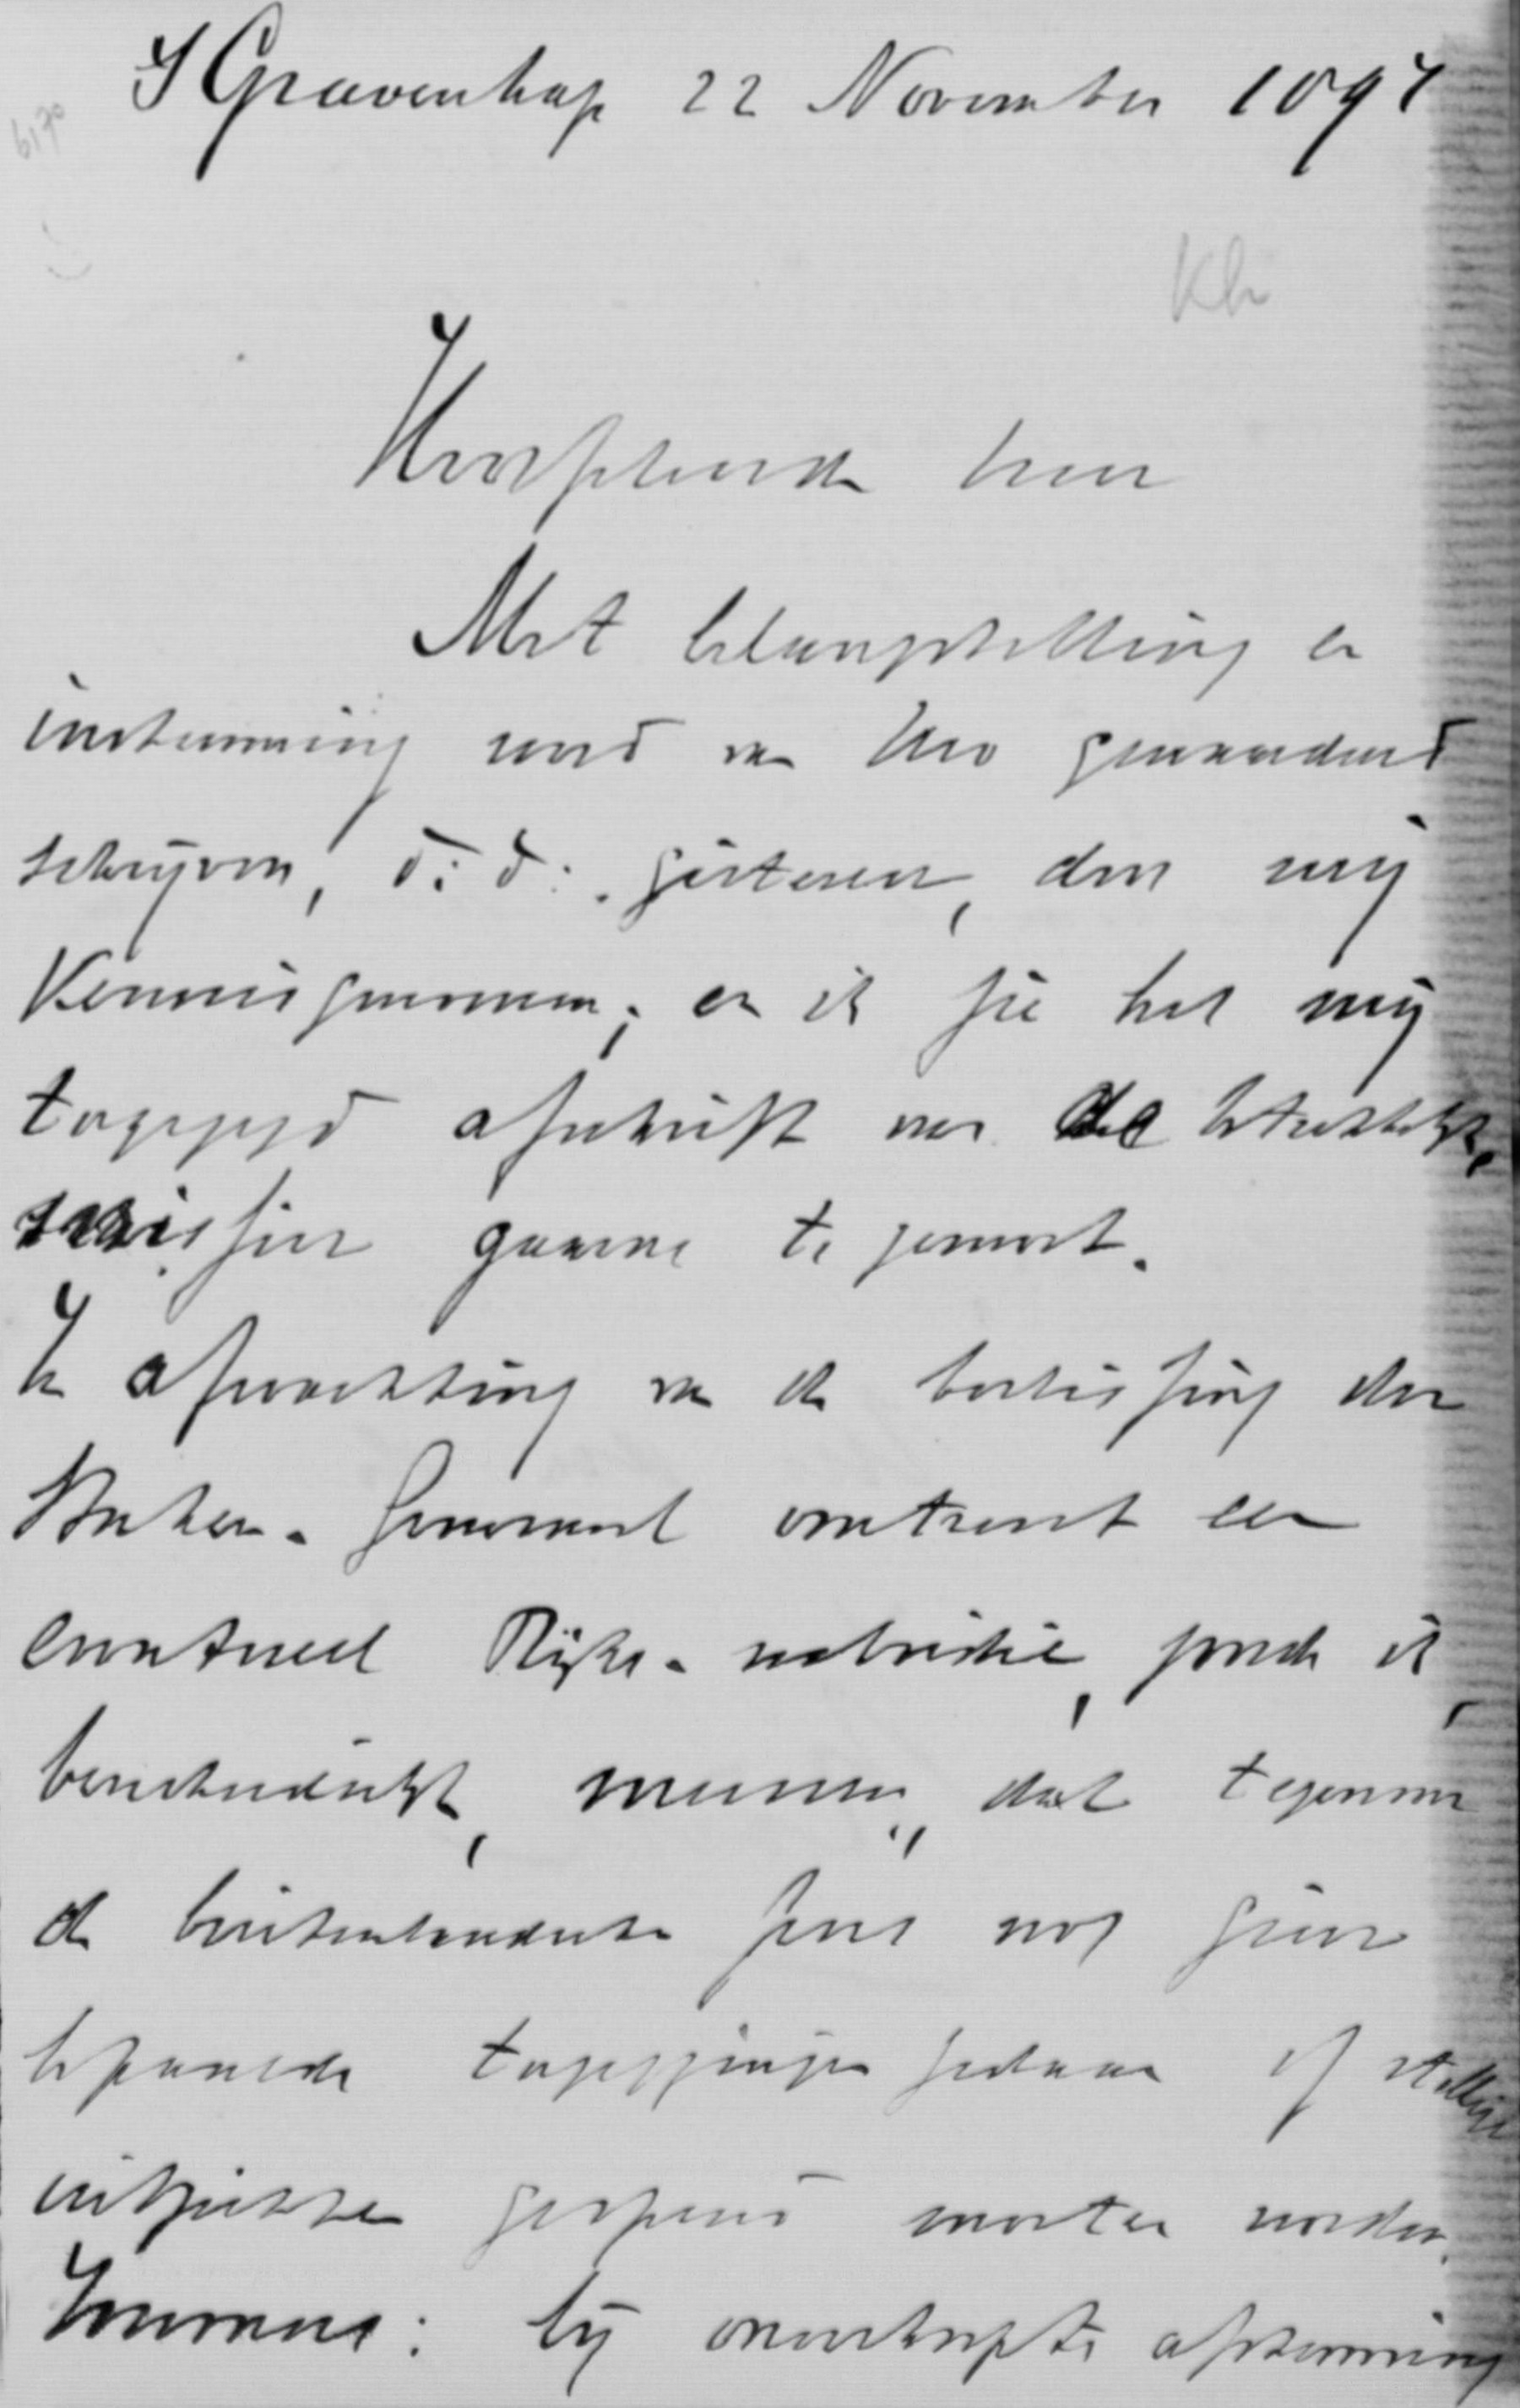 'S Gravenhage 22 November 1897
6170
Kh
Hooggeleerde heer
Met belangstelling en
instemming werd van Uw gewaardeerd
schrijven, d: d: gisteren, door mij
kennisgenomen; en ik zie het mij
toegezegd afschrift van de betrekkelijke
missive gaarne te gemoet.
In afwachting van de beslissing der
Staten-Generaal omtrent een
eventueel Rijks-subsidie, zoude ik,
bescheidelijk, meenen, dat tegenover
de buitenlandsche heeren nog geene
bepaalde toezeggingen gedaan of stellige
uitzichten geopend moeten worden.
Immers: bij onverhoopte afstemming